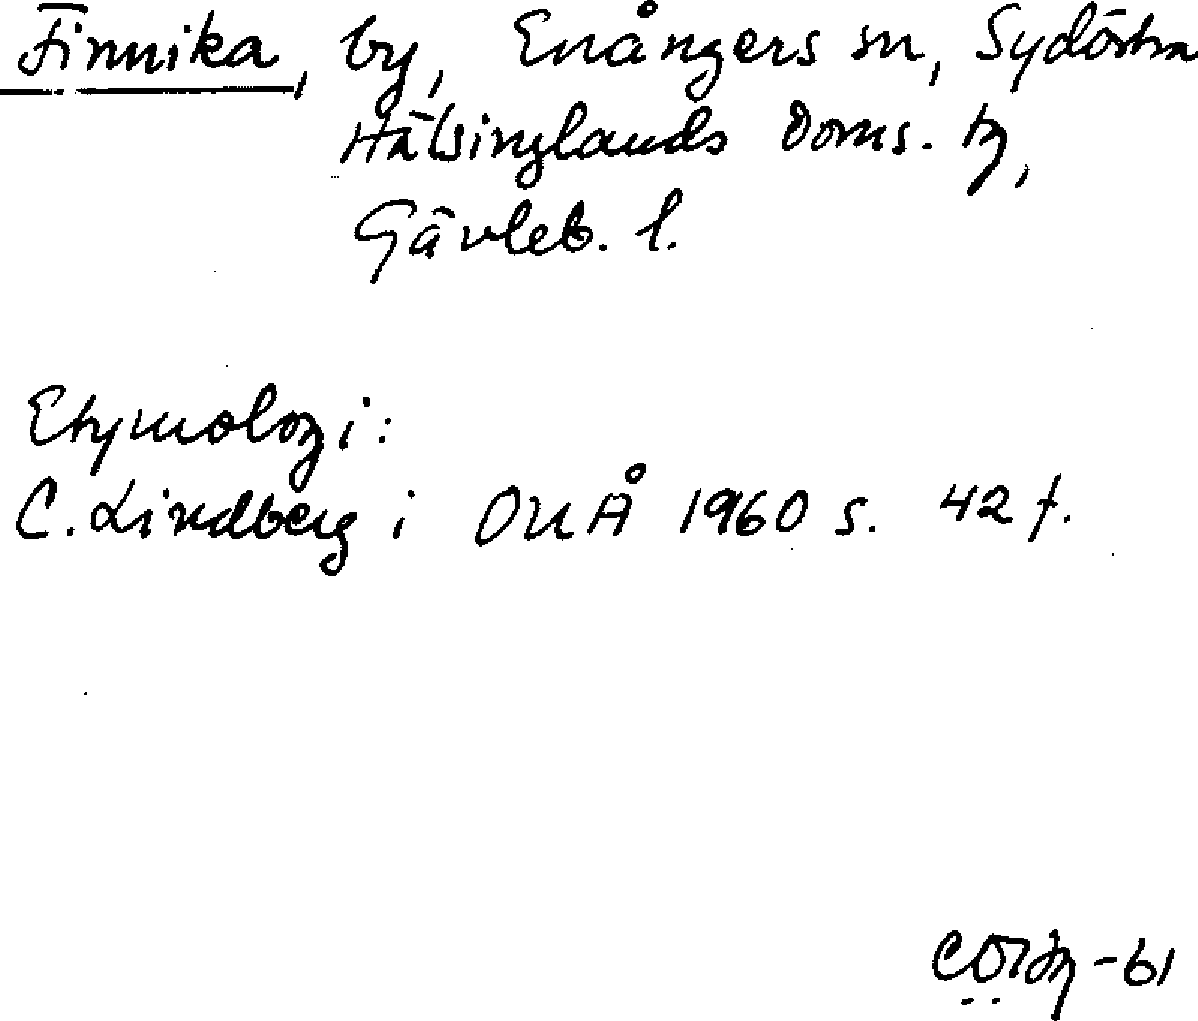 Finnika, by, Enångers sn, Sydöstra
Hälsinglands doms. tg,
Gävleb. l.
Etymologi:
C. Lindberg i ONÅ 1960 s. 42 f.
-61